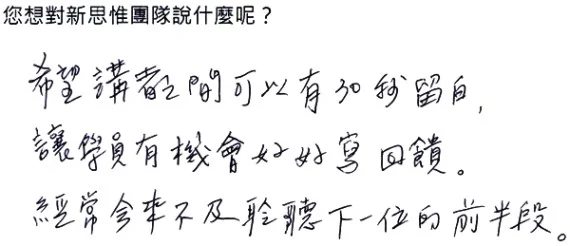 您想對新思惟團隊說什麼呢？
希望講者之間可以有30秒留白,
讓學員有機會好好寫回饋。
經常會來不及聆聽下一位的前半段。